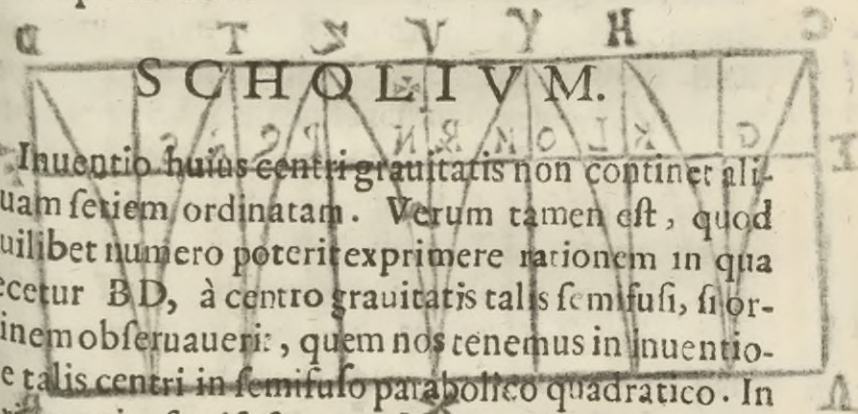 SCHOLIVM.
Inuentio huius centri grauitatis non continet ali-
uam seriem ordinatam. Verum tamen est, quod
uilibet numero poterit exprimere rationem in qua
ecetur BD, à centro grauitatis talis semifusi, si or-
inem obseruauerit, quem nos tenemus in inuentio-
e talis centri in semifuso parabolico quadratico. In